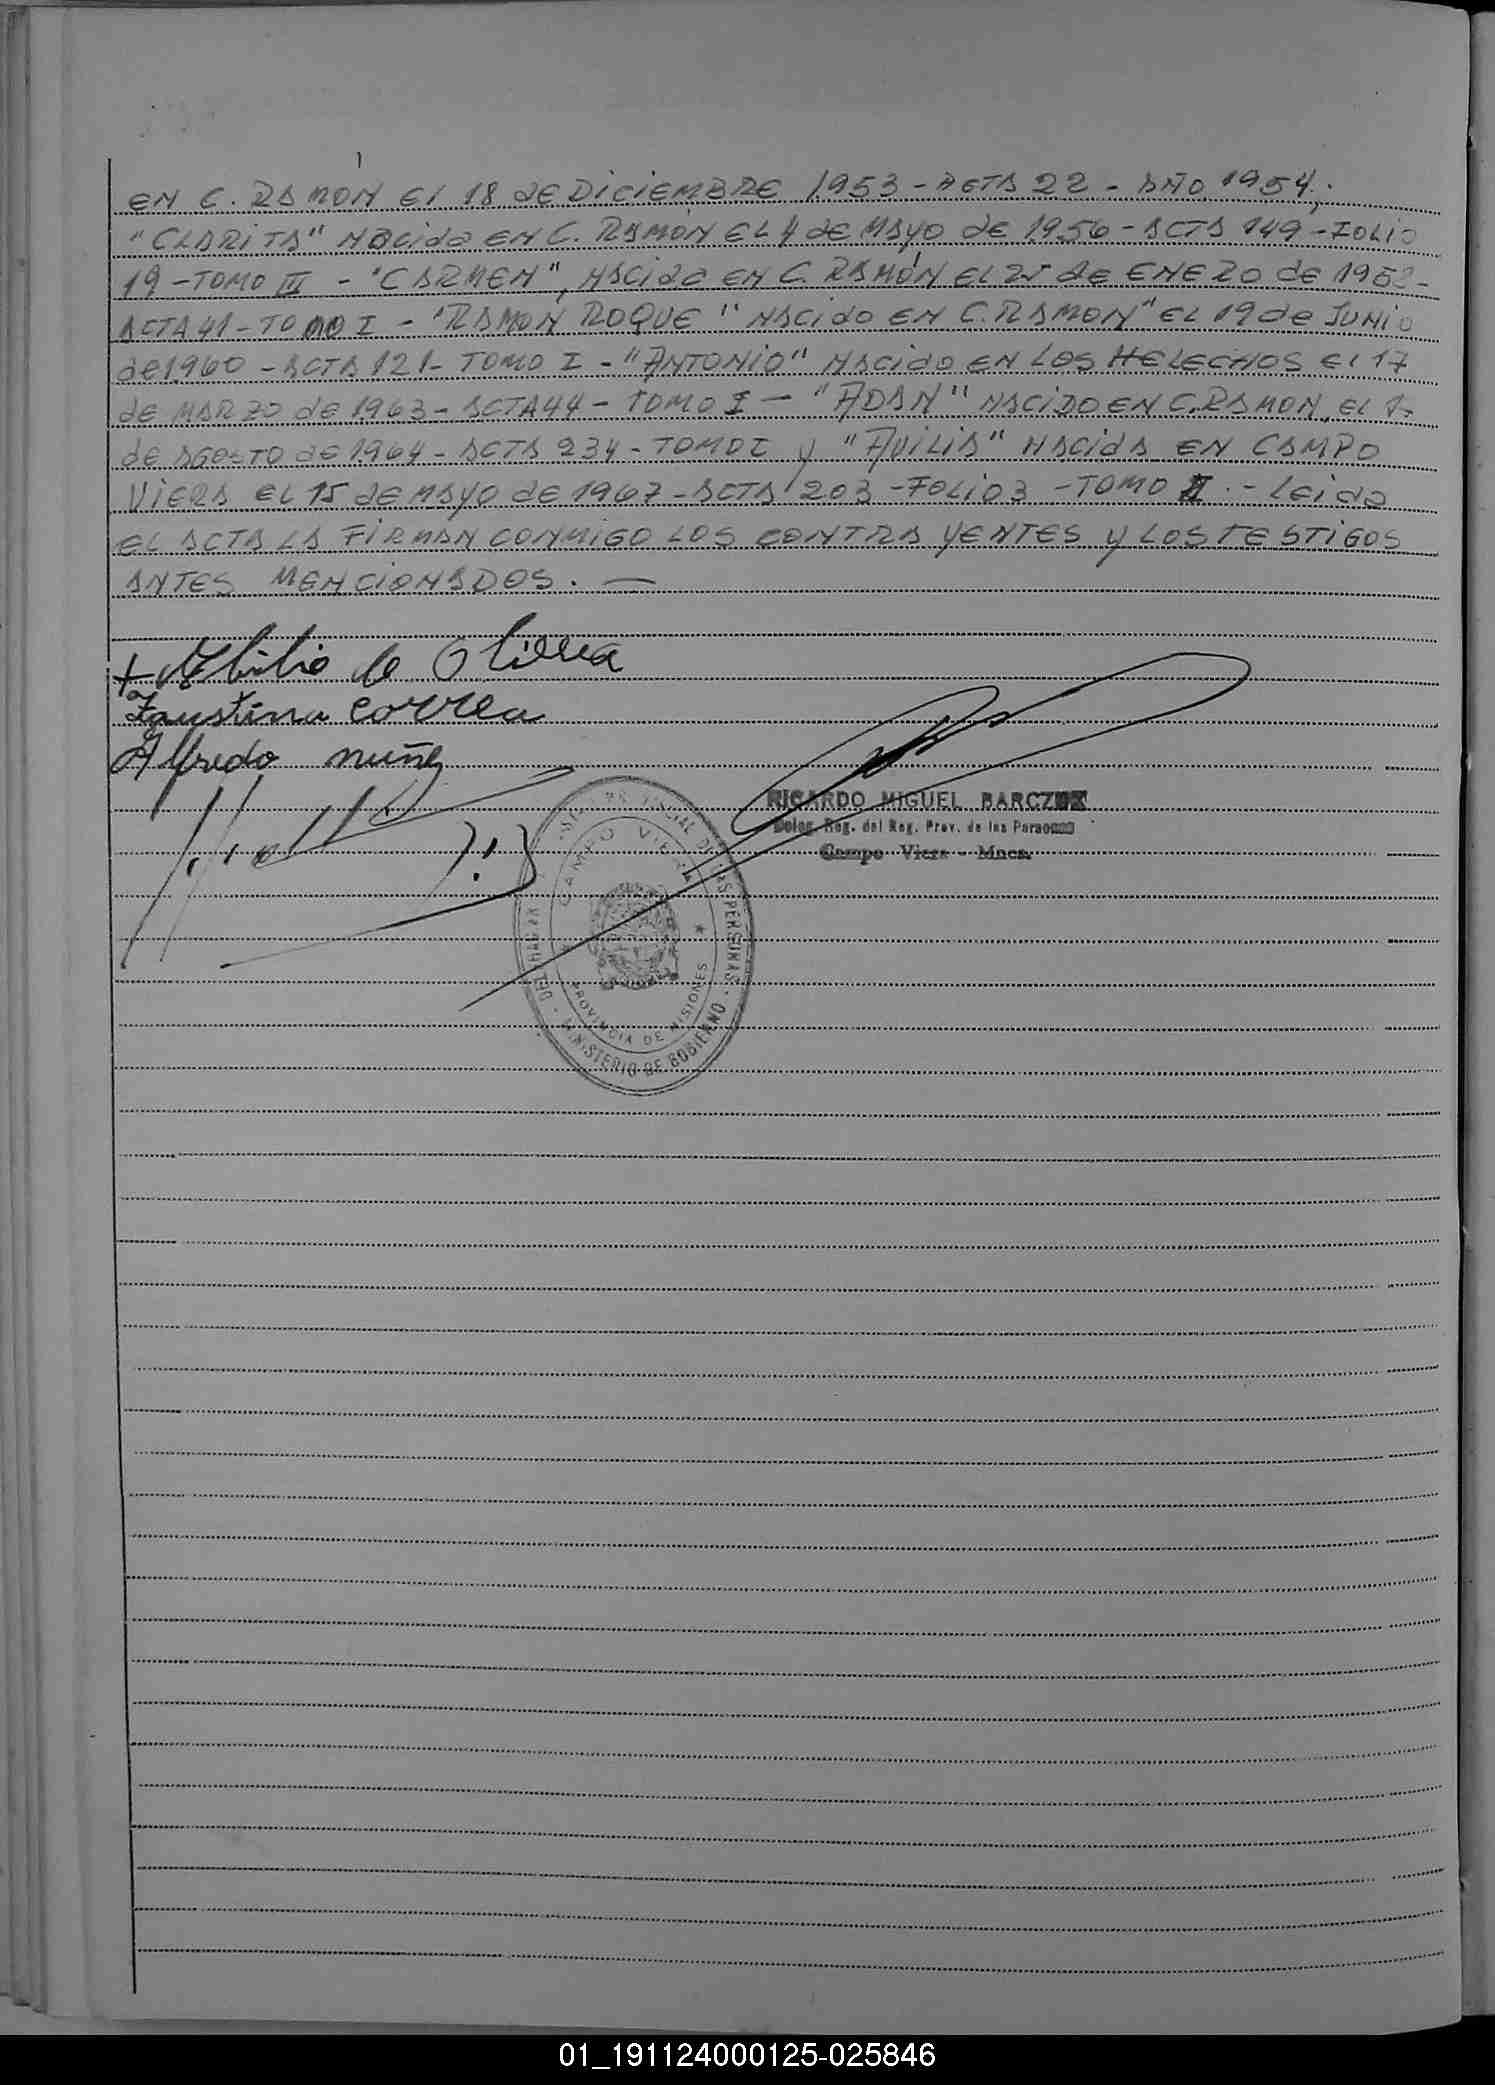 EN C. RAMON El 18 de DICIEMBRE 1.953 - ACTA 22 - AÑO 1954;
"CLARITA" NACIDA EN C. RAMÓN EL 4 de MAYO de 1.956 - ACTA 149 - FOLIO
19 - TOMO III - "CARMEN", NACIDA EN C. RAMÓN EL 25 de ENERO de
ACTA 41 - TOMO I - "RAMON ROQUE" NACIDO EN C. RAMON" EL 19 de JUNIO
de 1.960 - ACTA 121 - TOMO I - "ANTONIO" NACIDO EN LOS HELECHOS El 17
de MARZO de 1.963 - ACTA 44 - TOMO I - "ADAN" NACIDO EN C. RAMON, EL
de AGOSTO de 1.964 - ACTA 234 - TOMO I y "AVILIA" NACIDA EN CAMPO
VIERA EL 15 de MAYO de 1967 - ACTA 203 - FOLIO 3 - TOMO II. - Leida
EL ACTA LA FIRMAN CONMIGO LOS CONTRAYENTES y LOS TESTIGOS
ANTES MENCIONADOS. —
+ Abilio de Oliveira
Faustina Correa
Alfredo nuñez
RICARDO MIGUEL BARCZUK
Deleg. Reg. del Reg. Prov. de las Personas
Campo Viera - Mnes.
CAMPO VIERA
PROVINCIA DE MISIONES
MINISTERIO DE GOBIERNO
01_191124000125-025846